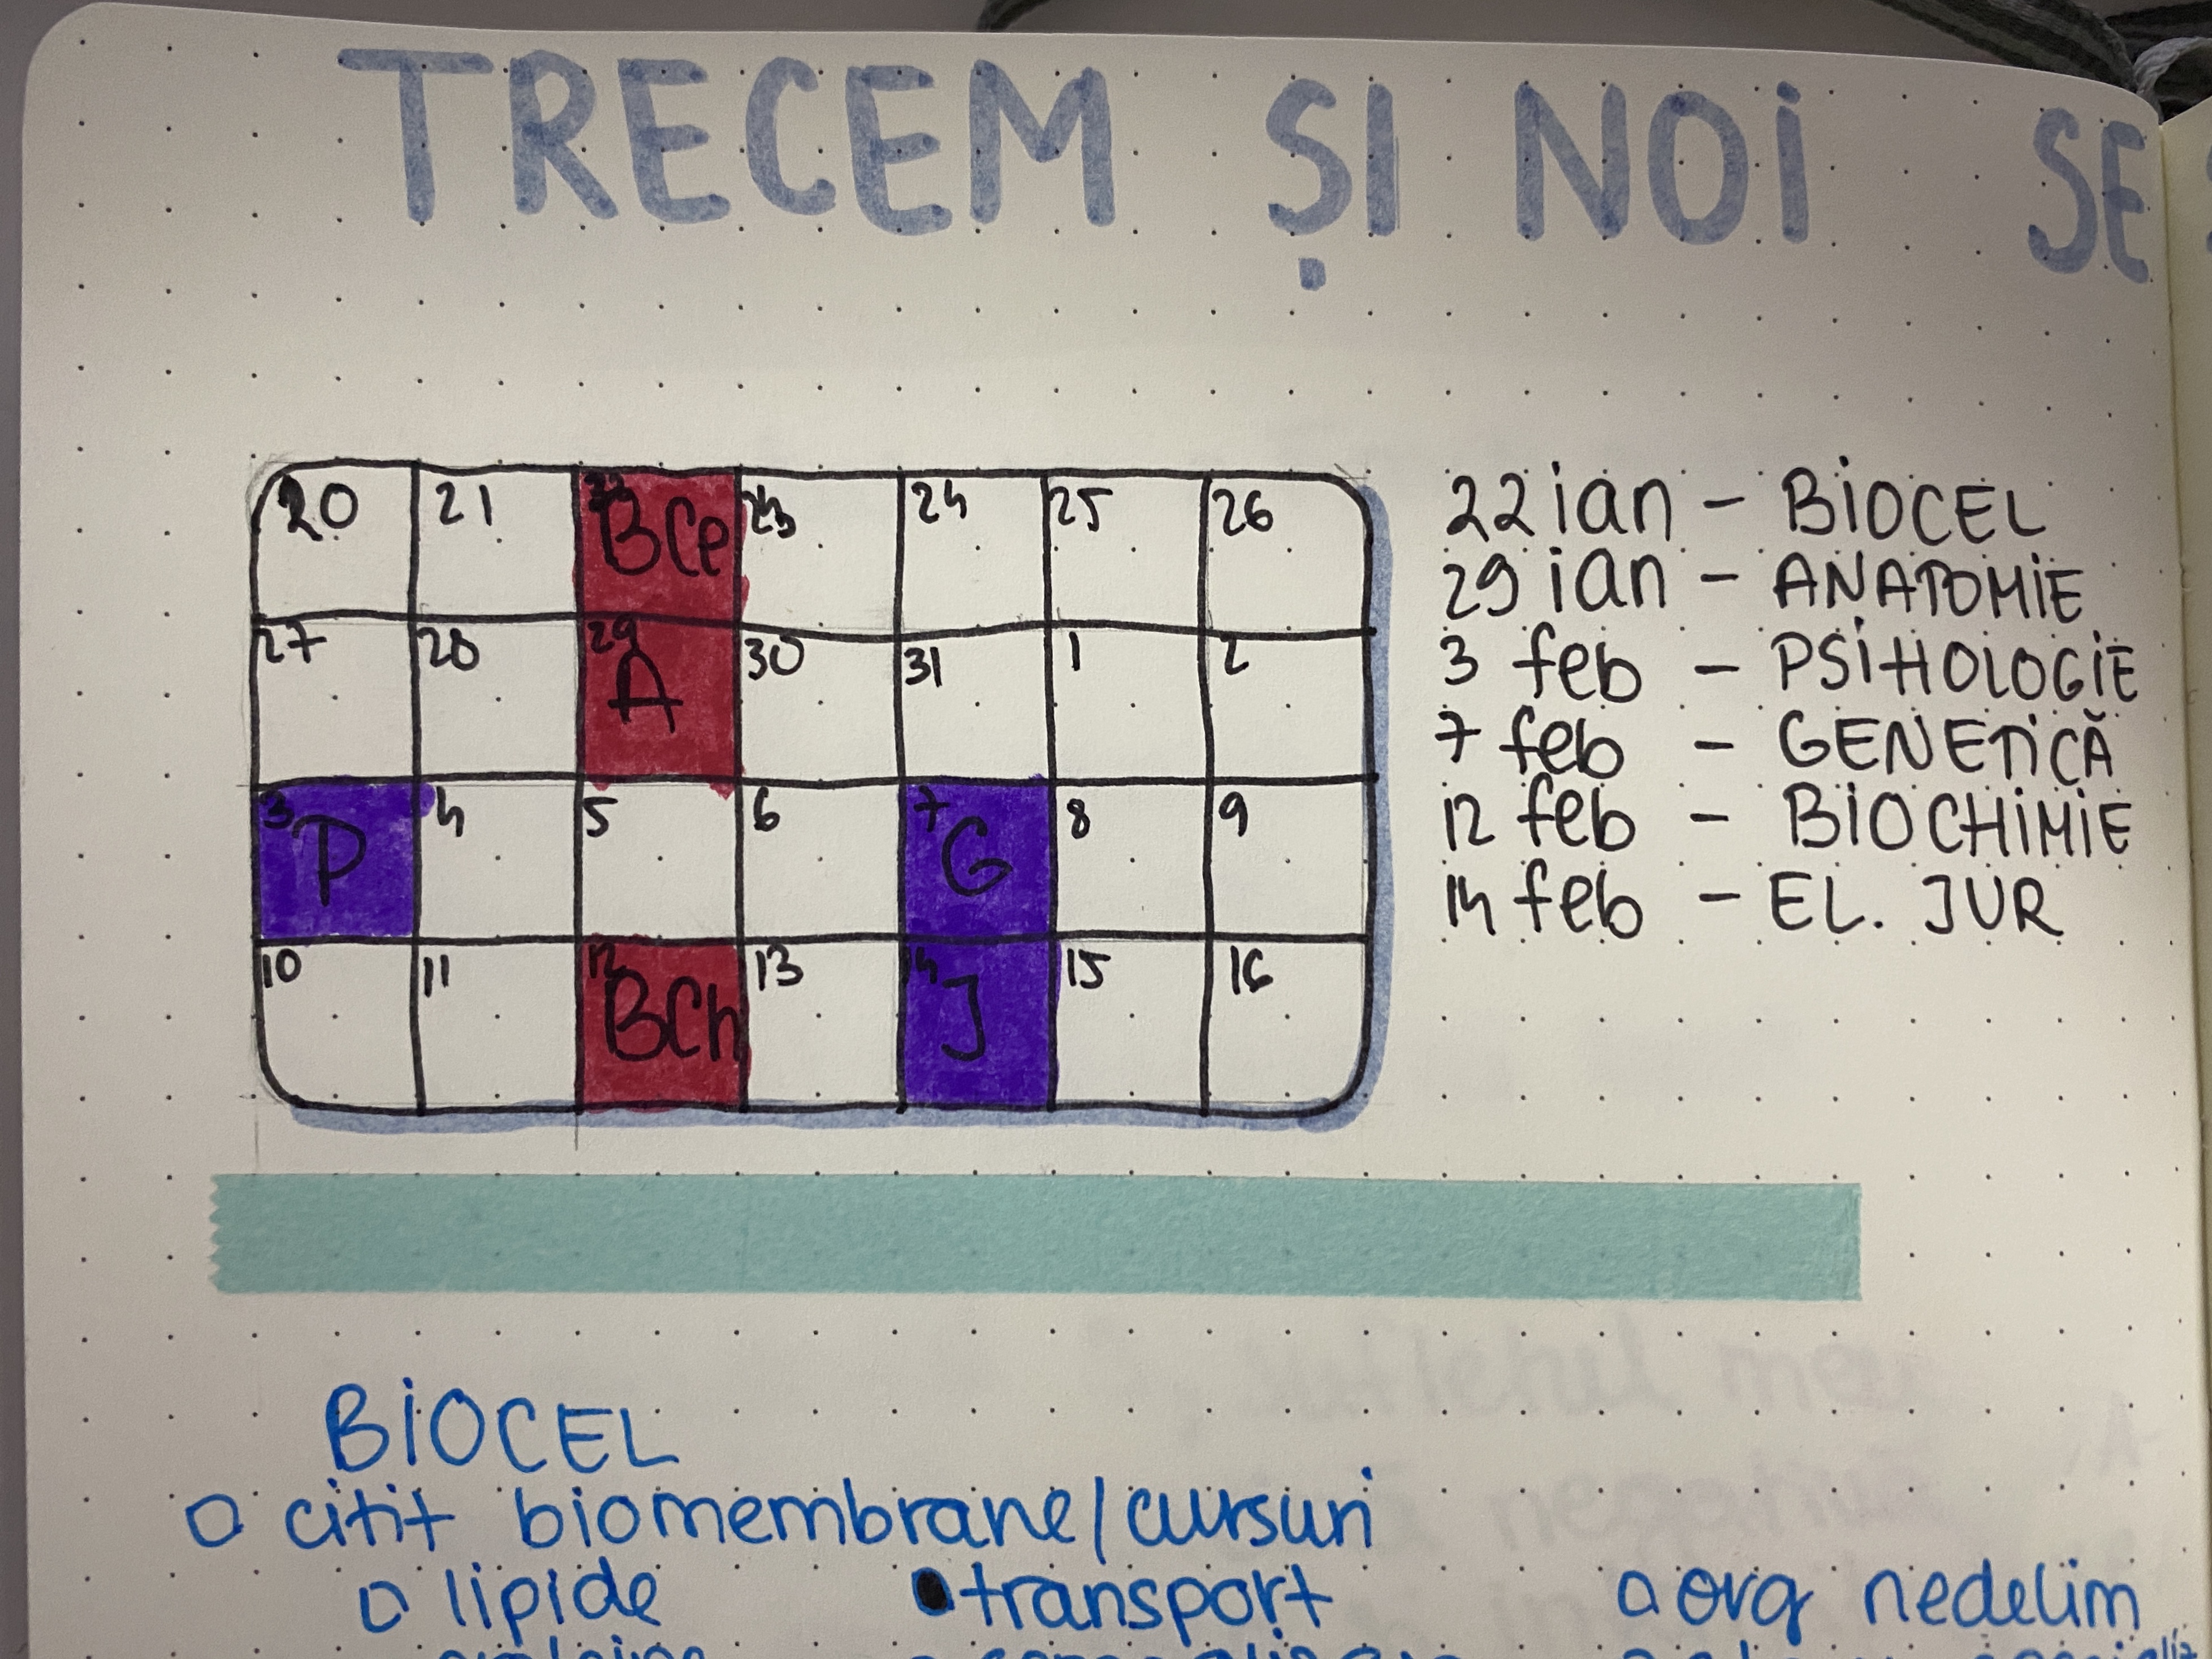 TRECEM ȘI NOI SE
20 21 22 23 24 25 26
BCe
27 28 29 30 31 1 2
A
3 4 5 6 7 8 9
P G
10 11 12 13 14 15 16
BCh J
22 ian - BIOCEL
29 ian - ANATOMIE
3 feb - PSIHOLOGIE
7 feb - GENETICĂ
12 feb - BIOCHIMIE
14 feb - EL. JUR
BIOCEL
citit biomembrane/cursuri
lipide transport org nedelim